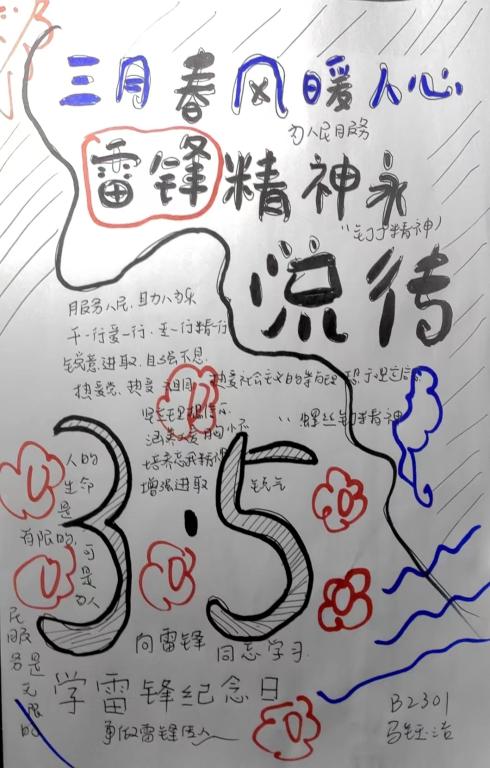 三月春风暖人心
为人民服务
雷锋精神永
流传
“钉子精神”
服务人民,助人为乐
干一行爱一行、专一行精一行
锐意进取、自强不息
热爱党、热爱祖国、热爱社会主义的崇高理想
坚定理想信
“螺丝钉精神
增强进取 锐气
3·5
人的
生命
是
有限的,可
是
为人
民服
务是
无限
的
向雷锋 同志学习
学雷锋纪念日
争做雷锋传人
B2301